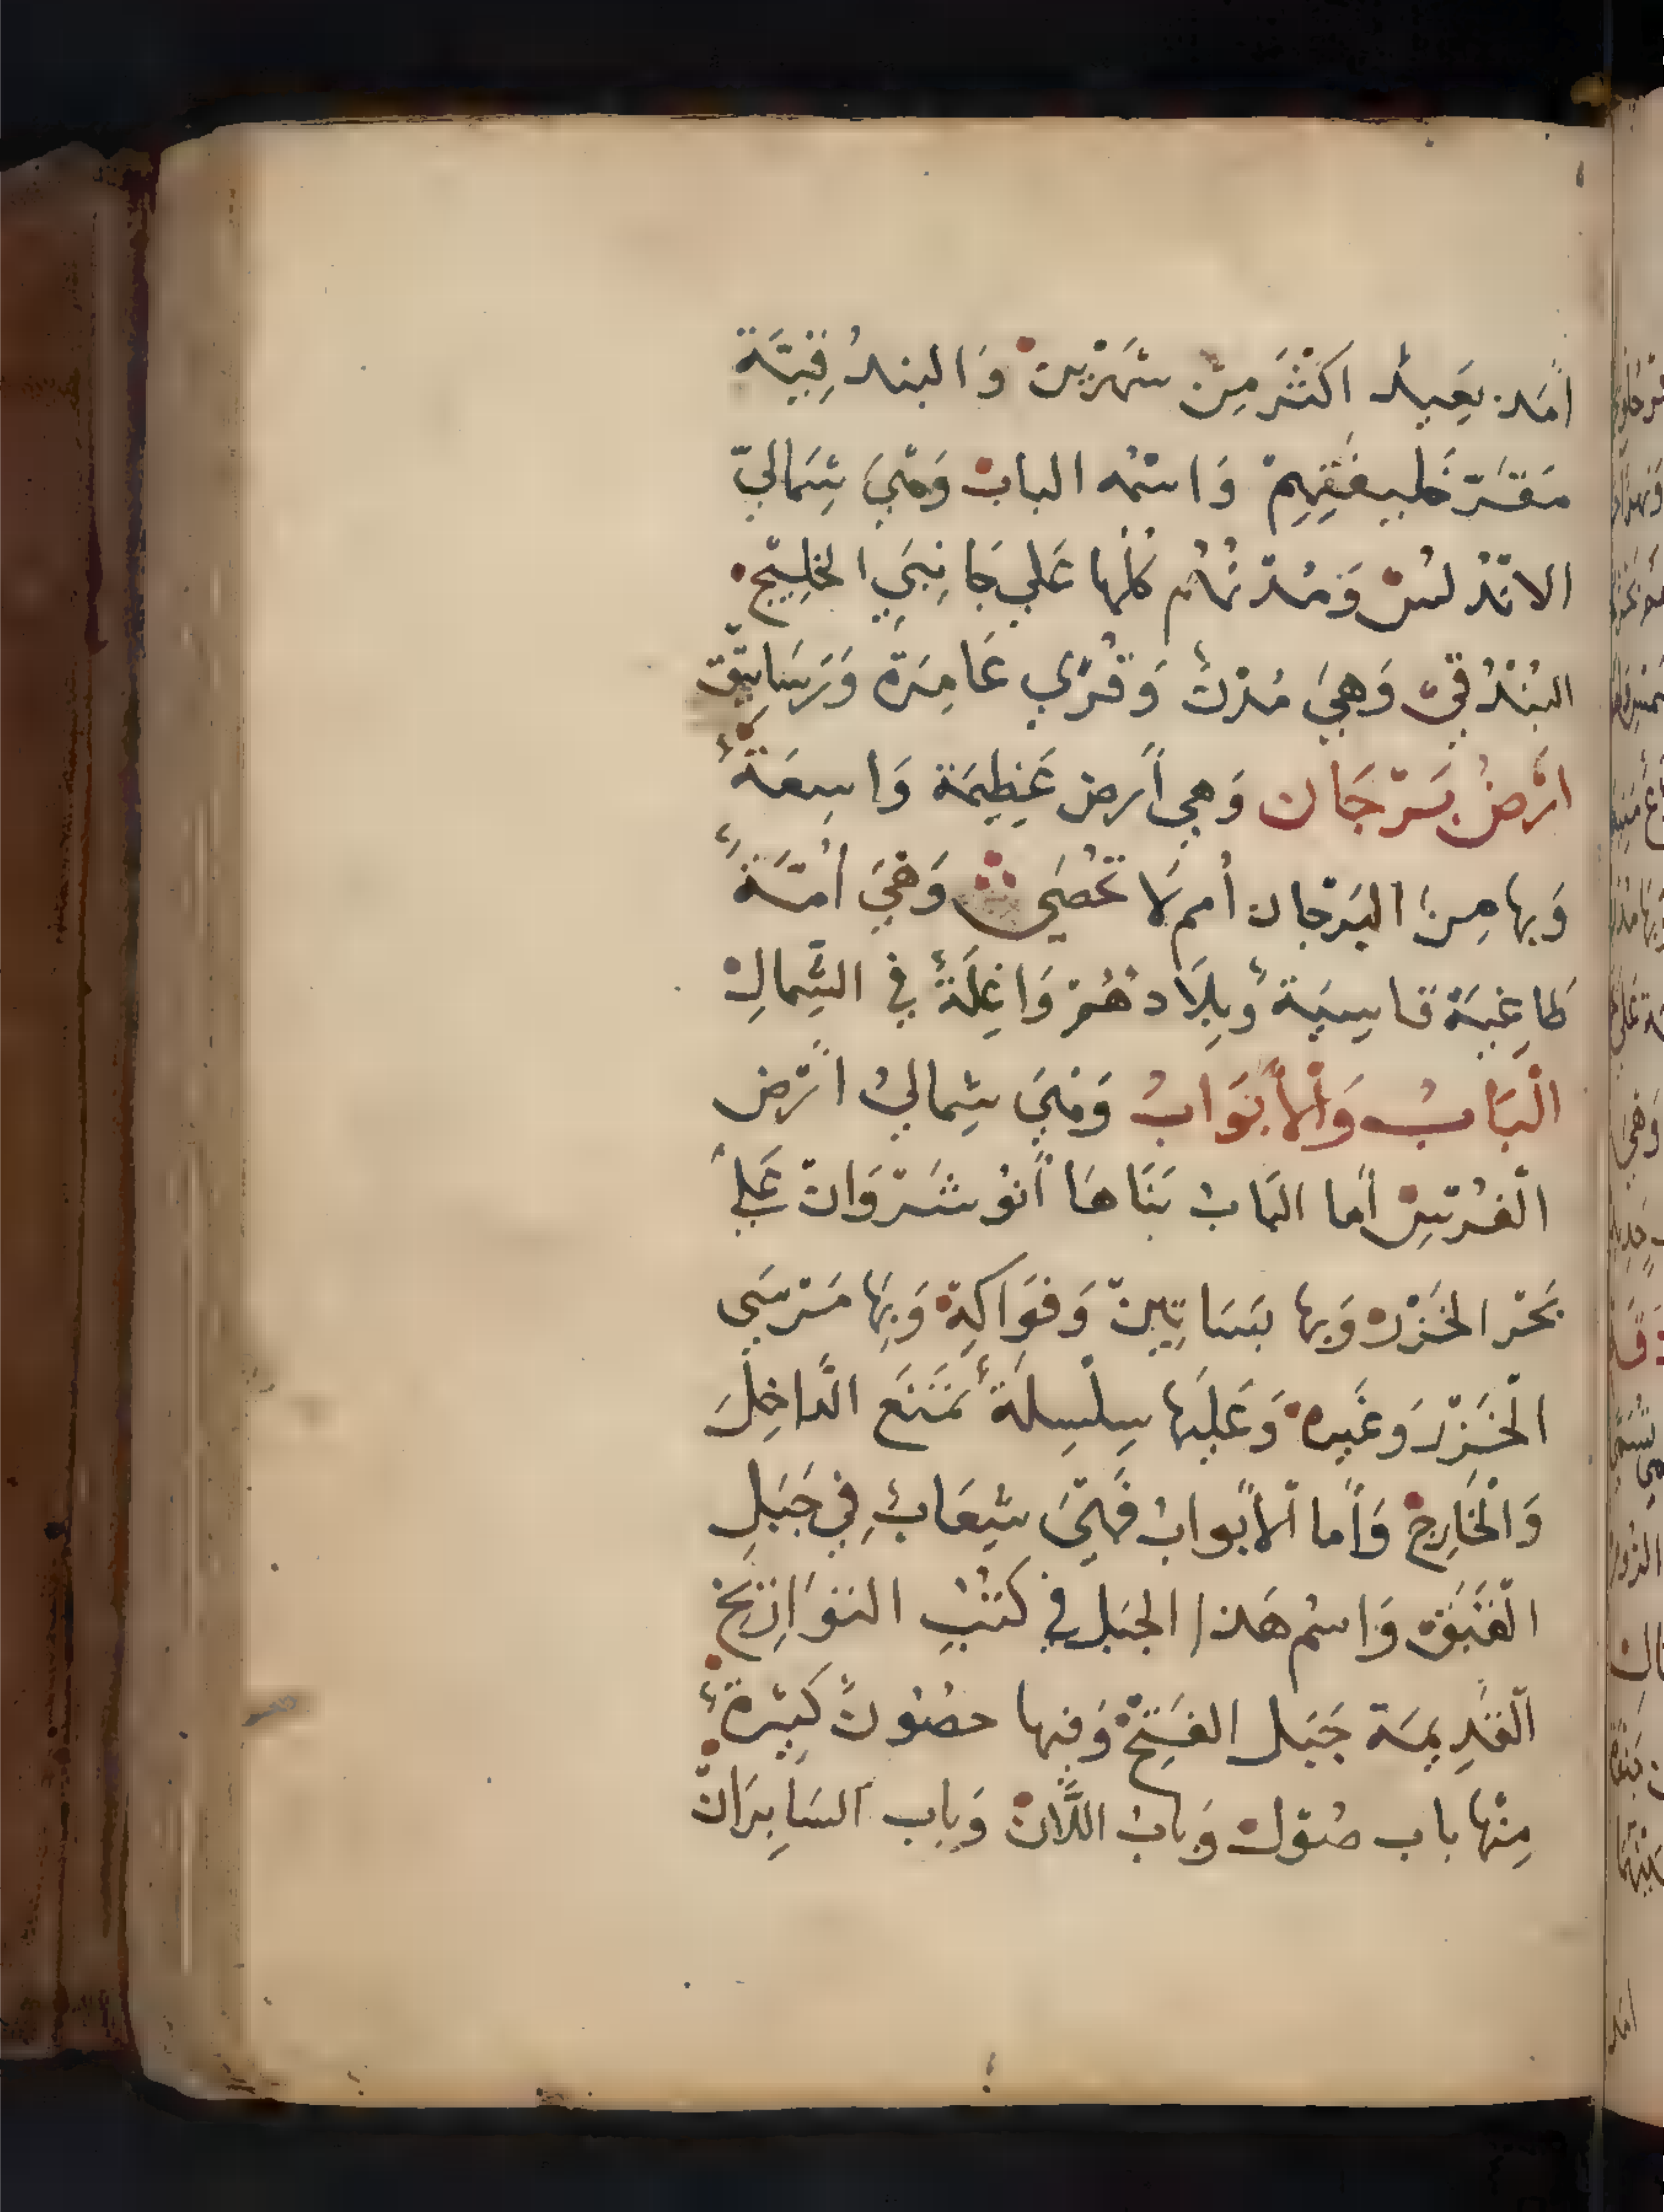 أمَد بَعِيدٌ اكثَر مِنْ شَهْرَيْن وَالبندُقِيَّة
مَقَرّ خَلِيفَتِهِمْ وَاسْمُه البابْ وَهْيَ شِمَاليّ
الاندلسْ وَمُدْنُهُم كلّها عَلي جَانِبَيِ الخَلِيجِ
البُنْدُقيّ وَهيَ مُدْنٌ وَقُرًي عَامِرَة وَرَسَاتِيق
ارْضُ بَرْجَان وَهي أرض عَظِيمَة وَاسِعَةٌ
وَبها مِنَ البَرْجان أُمم لَا تحْصَي وَهْيَ أُمَّةٌ
طاغِيَة قاسِيَةٌ وبِلَادهُمْ وَاغِلَةٌ في الشِّمالِ
الْبَابُ وَالْأَبْوَابُ وَهْيَ شِماليُ أرْض
الْفُرْسِ أما البَاب بَنَاها أَنوُشَرْوَانْ عَلي
بَحْر الخَزْر وَبها بَسَاتِينْ وَفوَاكِهْ وَبِهَا مَرْسَي
الْخَزْر وَغَيره وَعَلَيها سِلْسِلَةٌ تَمْنَع الدَّاخِلَ
وَالْخَارِجْ وَأَما الْأَبواب فَهْيَ شِعَابٌ فِي جَبَلِ
الْقَبَق وَاسْم هَذا الجَبَل في كُتُبِ التوَارِيخِ
الْقَدِيمَة جَبَل الفَتِحْ وَفِيها حصُونٌ كَثِيرَةٌ
مِنْها باب صُوْل وَبابُ اللَّان وَباب السَابِرَانْ